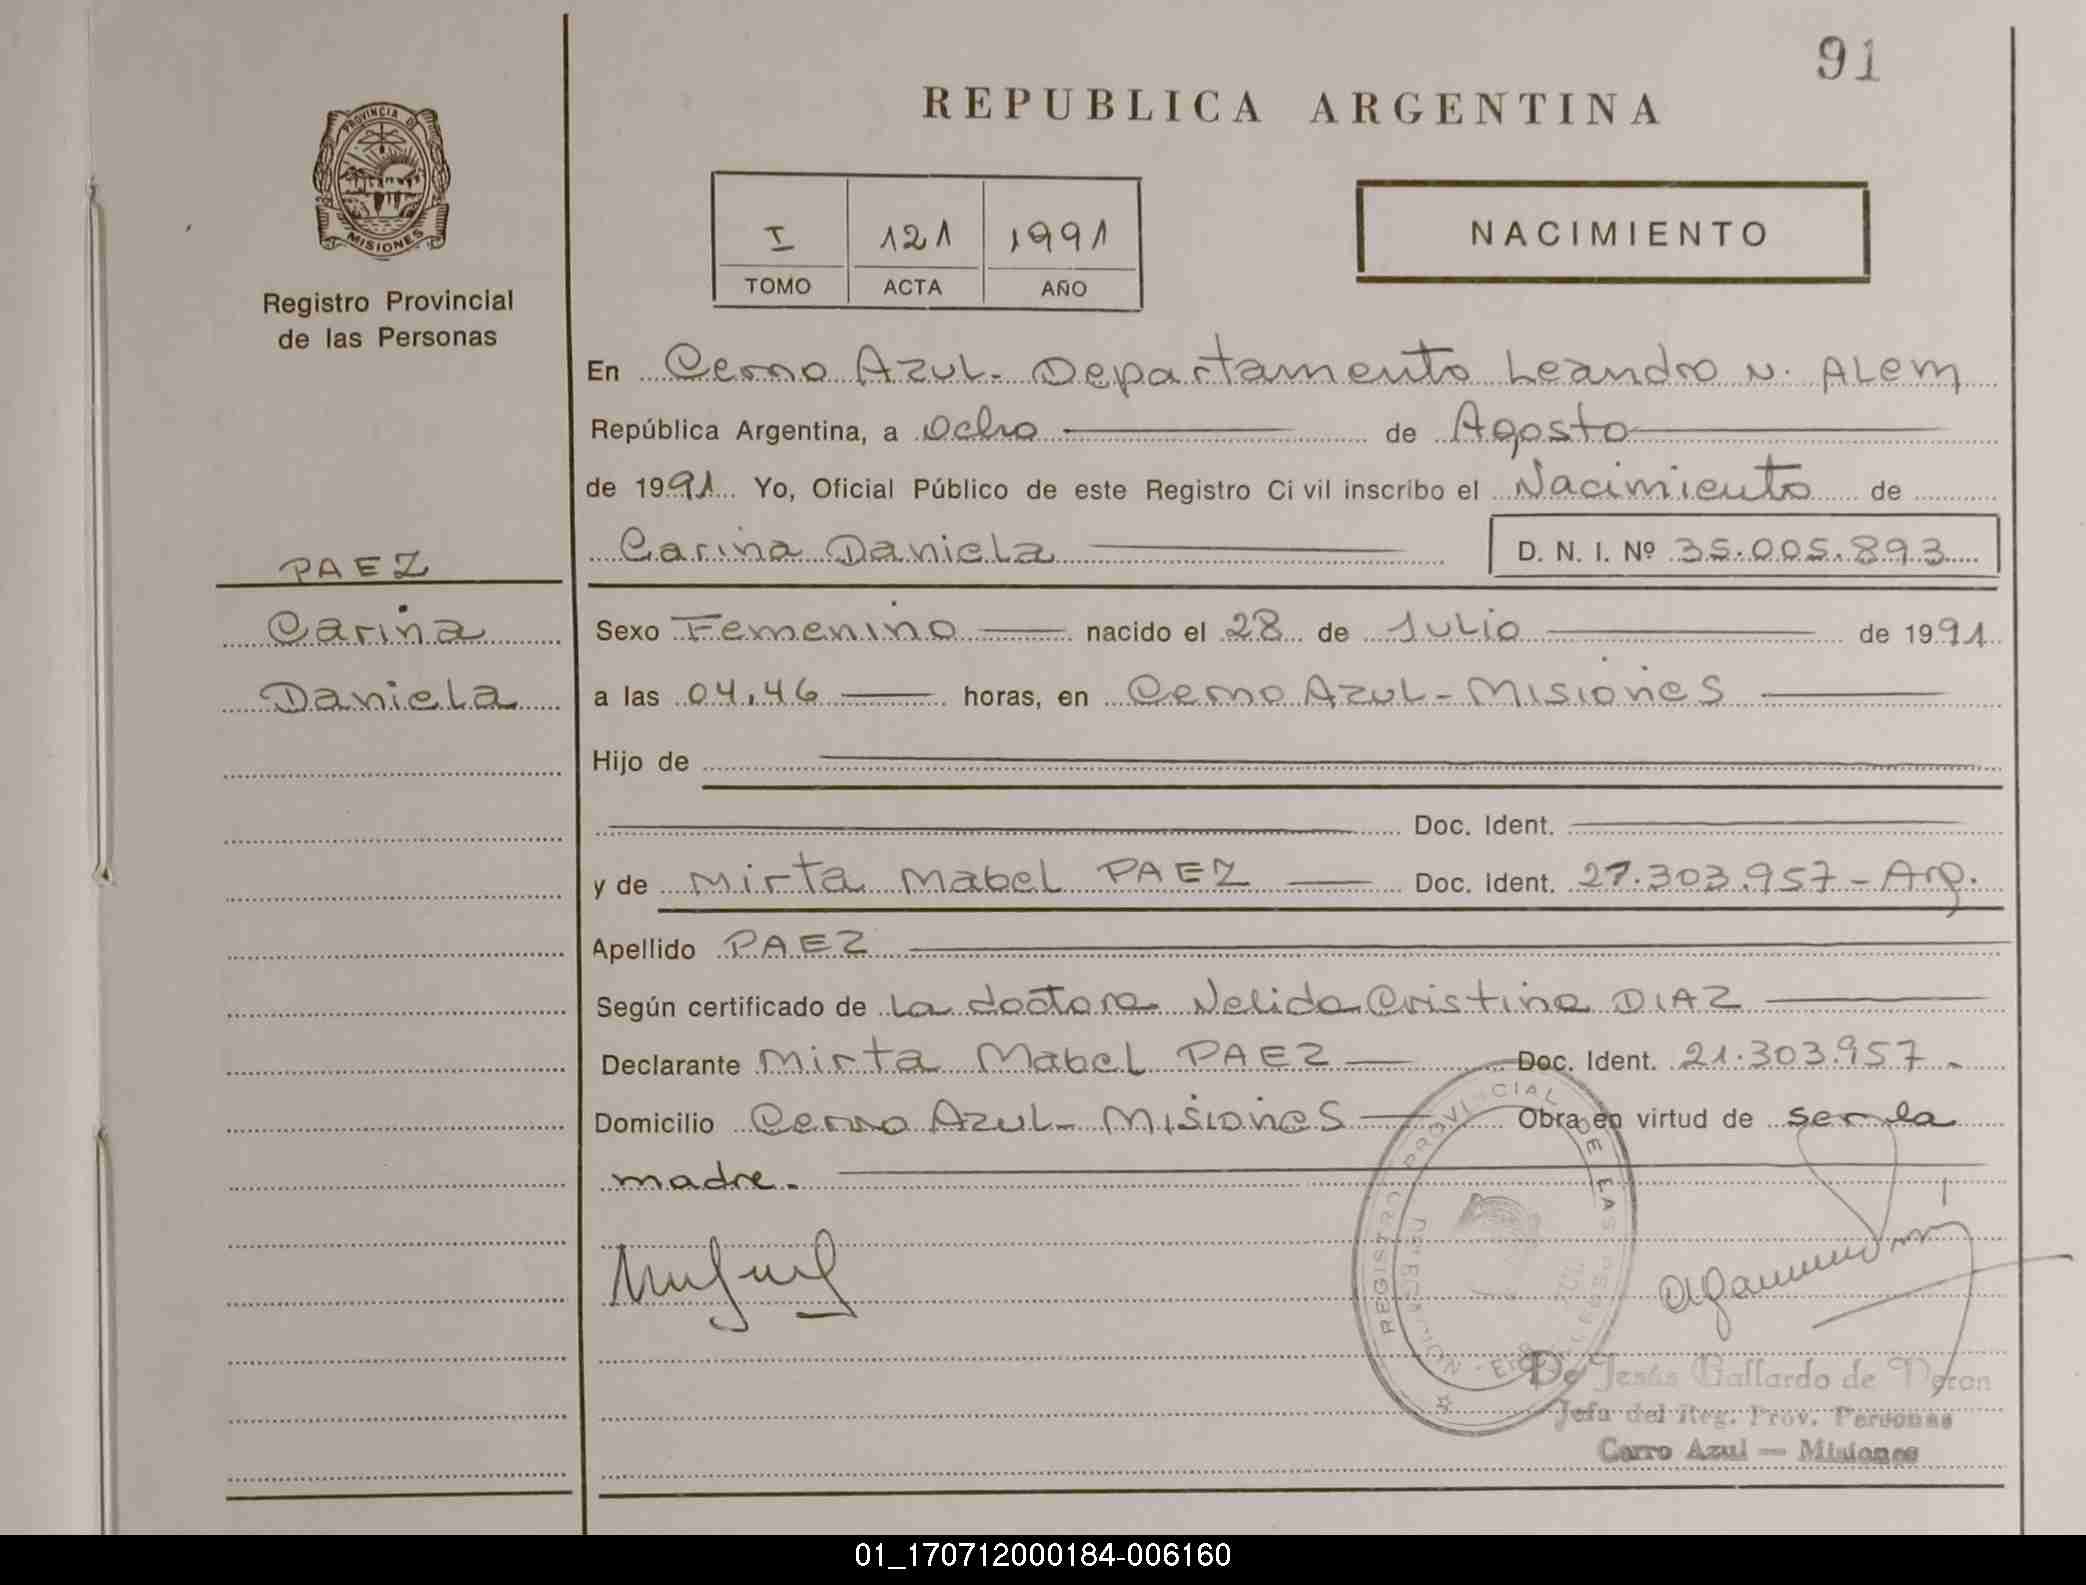 91
REPUBLICA ARGENTINA
PROVINCIA DE
MISIONES
Registro Provincial
de las Personas
I 121 1991
TOMO ACTA AÑO
NACIMIENTO
En Cerro Azul - Departamento Leandro N. Alem
República Argentina, a Ocho de Agosto
de 1991 Yo, Oficial Público de este Registro Civil inscribo el Nacimiento de
Carina Daniela D. N. I. Nº 35.005.893
PAEZ
Carina
Daniela
Sexo Femenino nacido el 28 de Julio de 1991
a las 04,46 horas, en Cerro Azul - Misiones
Hijo de
Doc. Ident.
y de Mirta Mabel PAEZ Doc. Ident. 27.303.957 - Arg.
Apellido PAEZ
Según certificado de la doctora Nelida Cristina DIAZ
Declarante Mirta Mabel PAEZ Doc. Ident. 21.303.957
Domicilio Cerro Azul - Misiones Obra en virtud de ser la
madre.
REGISTRO PROVINCIAL DE LAS
De Jesús Gallardo de Neron
Jefa del Reg. Prov. Personas
Cerro Azul — Misiones
01_170712000184-006160